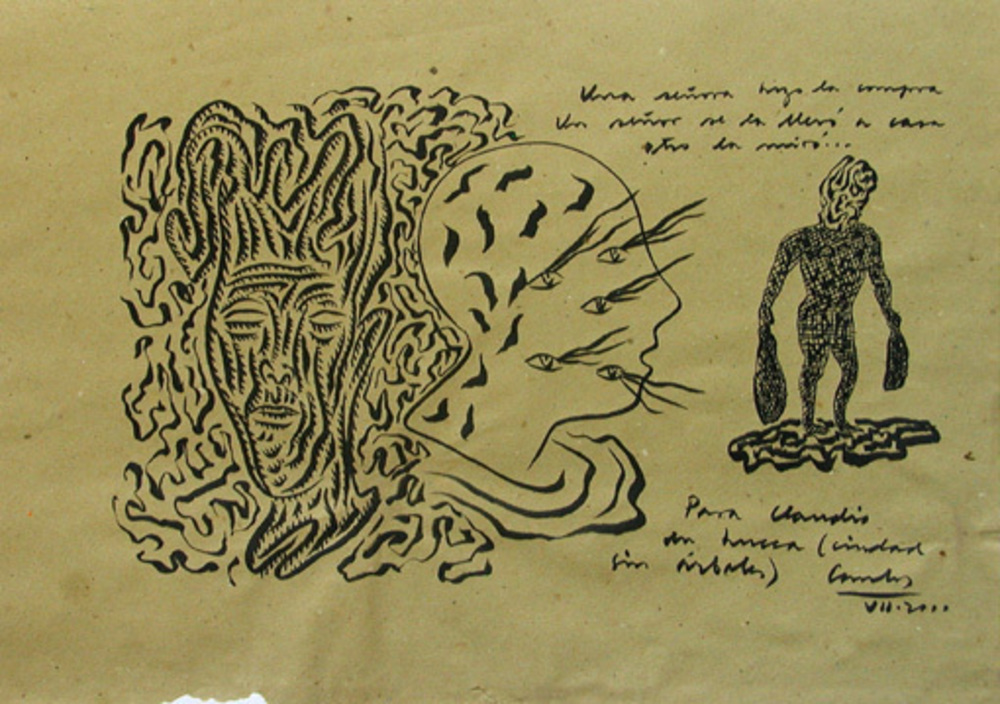 Una señora hizo la compra
Un señor se la llevó a casa
otro la miró...
Para Claudio
en huesca (ciudad
sin árboles)
VII.2000